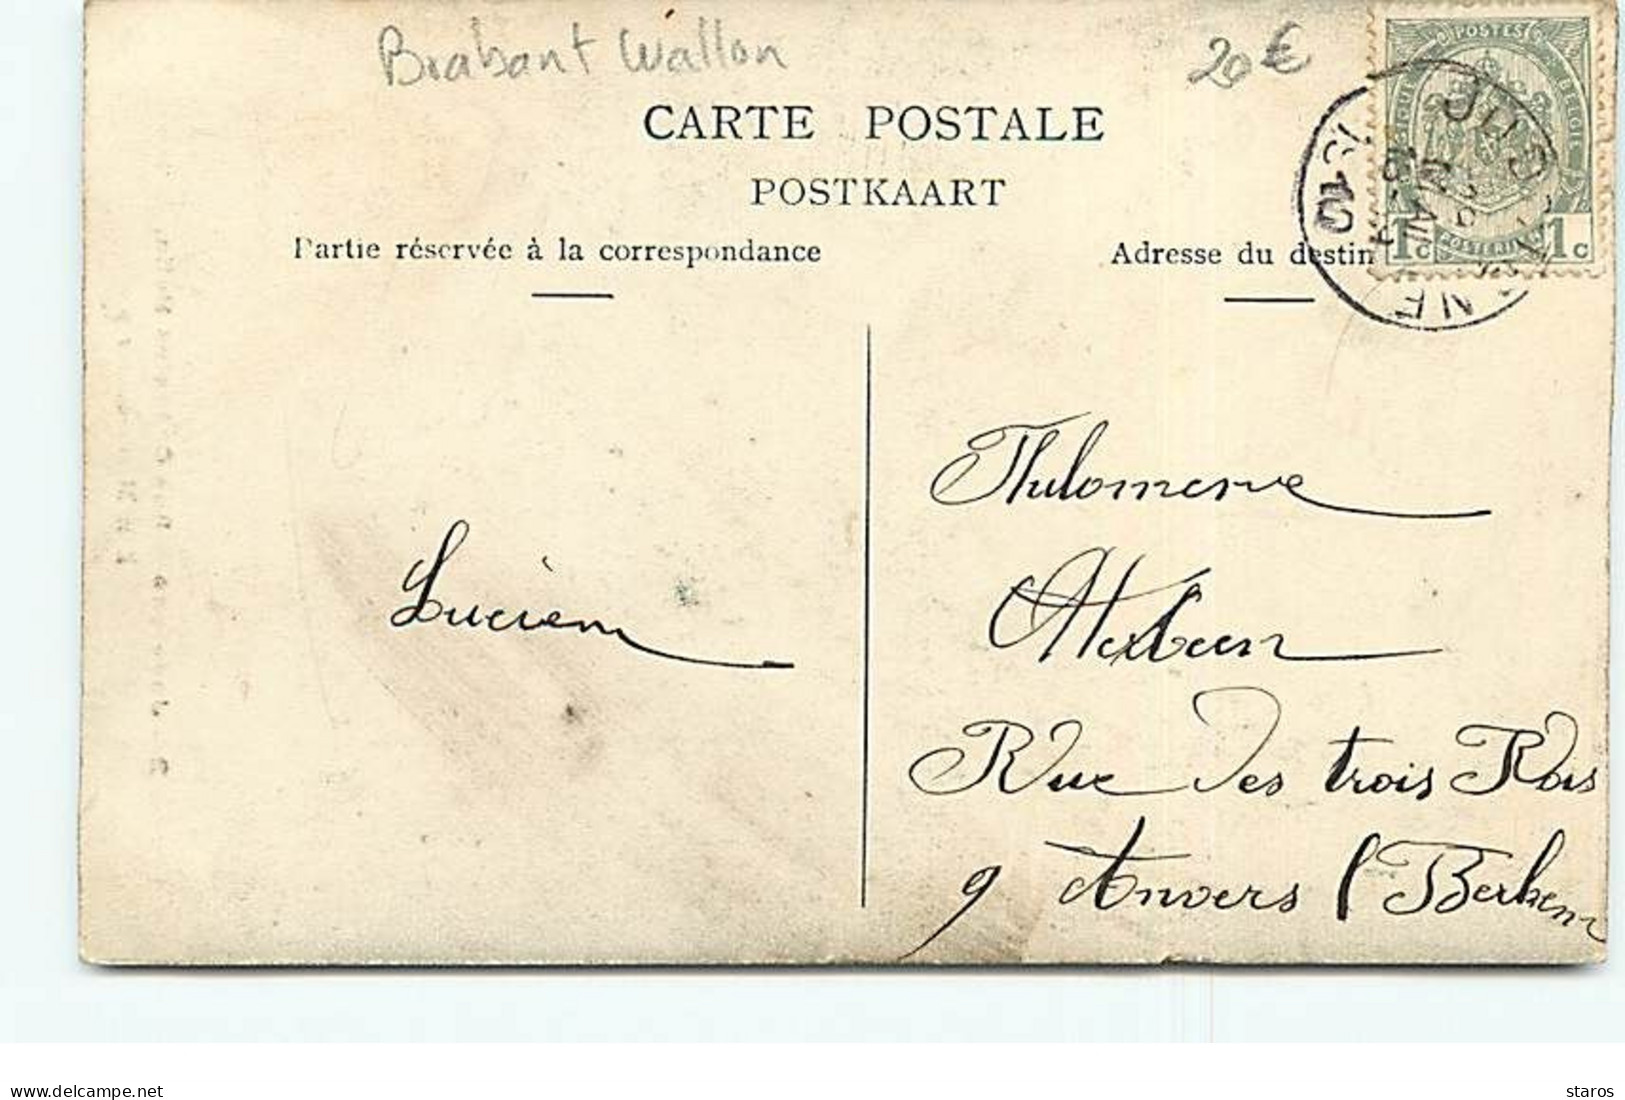 Brabant Wallon
20 €
CARTE POSTALE
POSTKAART
Partie réservée à la correspondance
Adresse du destin
POSTES
BELGIE
1c POSTERIJEN 1c
1910
Lucien
Rue des trois Rois
9 Anvers
delcampe.net
staros